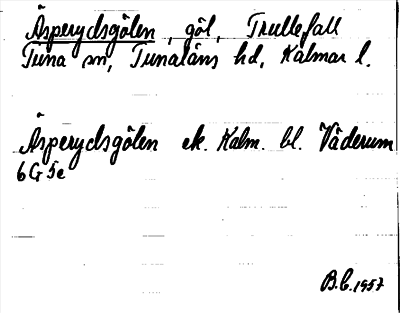 Äsperydsgölen, göl, Trullefall
Tuna sn, Tunaläns hd, Kalmar l.
Äsperydsgölen ek. Kalm. bl. Väderum
6G 5e
B.C. 1957